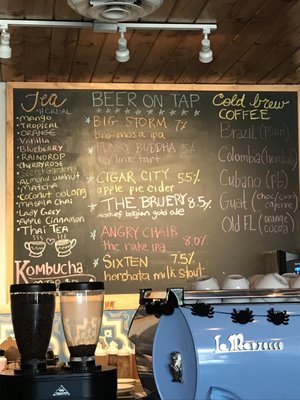 Tea
HERBAL
• mango
• TROPICAL
• ORANGE
• Vanilla
• Blueberry
• RAINDROP
• cherryrose
• Secret Garden
• Almond walnut
• Matcha
• Coconut oolong
• Masala Chai
• Lady Grey
• Apple Cinnamon
• Thai TEA
Kombucha
BEER ON TAP
BIG STORM 7%
bimosa ipa
FUNKY BUDDHA 5%
key lime tart
CIGAR CITY 5.5%
apple pie cider
THE BRUERY 8.5%
mischief belgian gold ale
ANGRY CHAIR
the rake IPA 8.0%
SIXTEN 7.5%
horchata milk stout
Cold brew
COFFEE
Brazil (Plain)
Colombia
Cubano
Guat (choc
cayenne)
Old FL (orange
cocoa)
La Marzocco